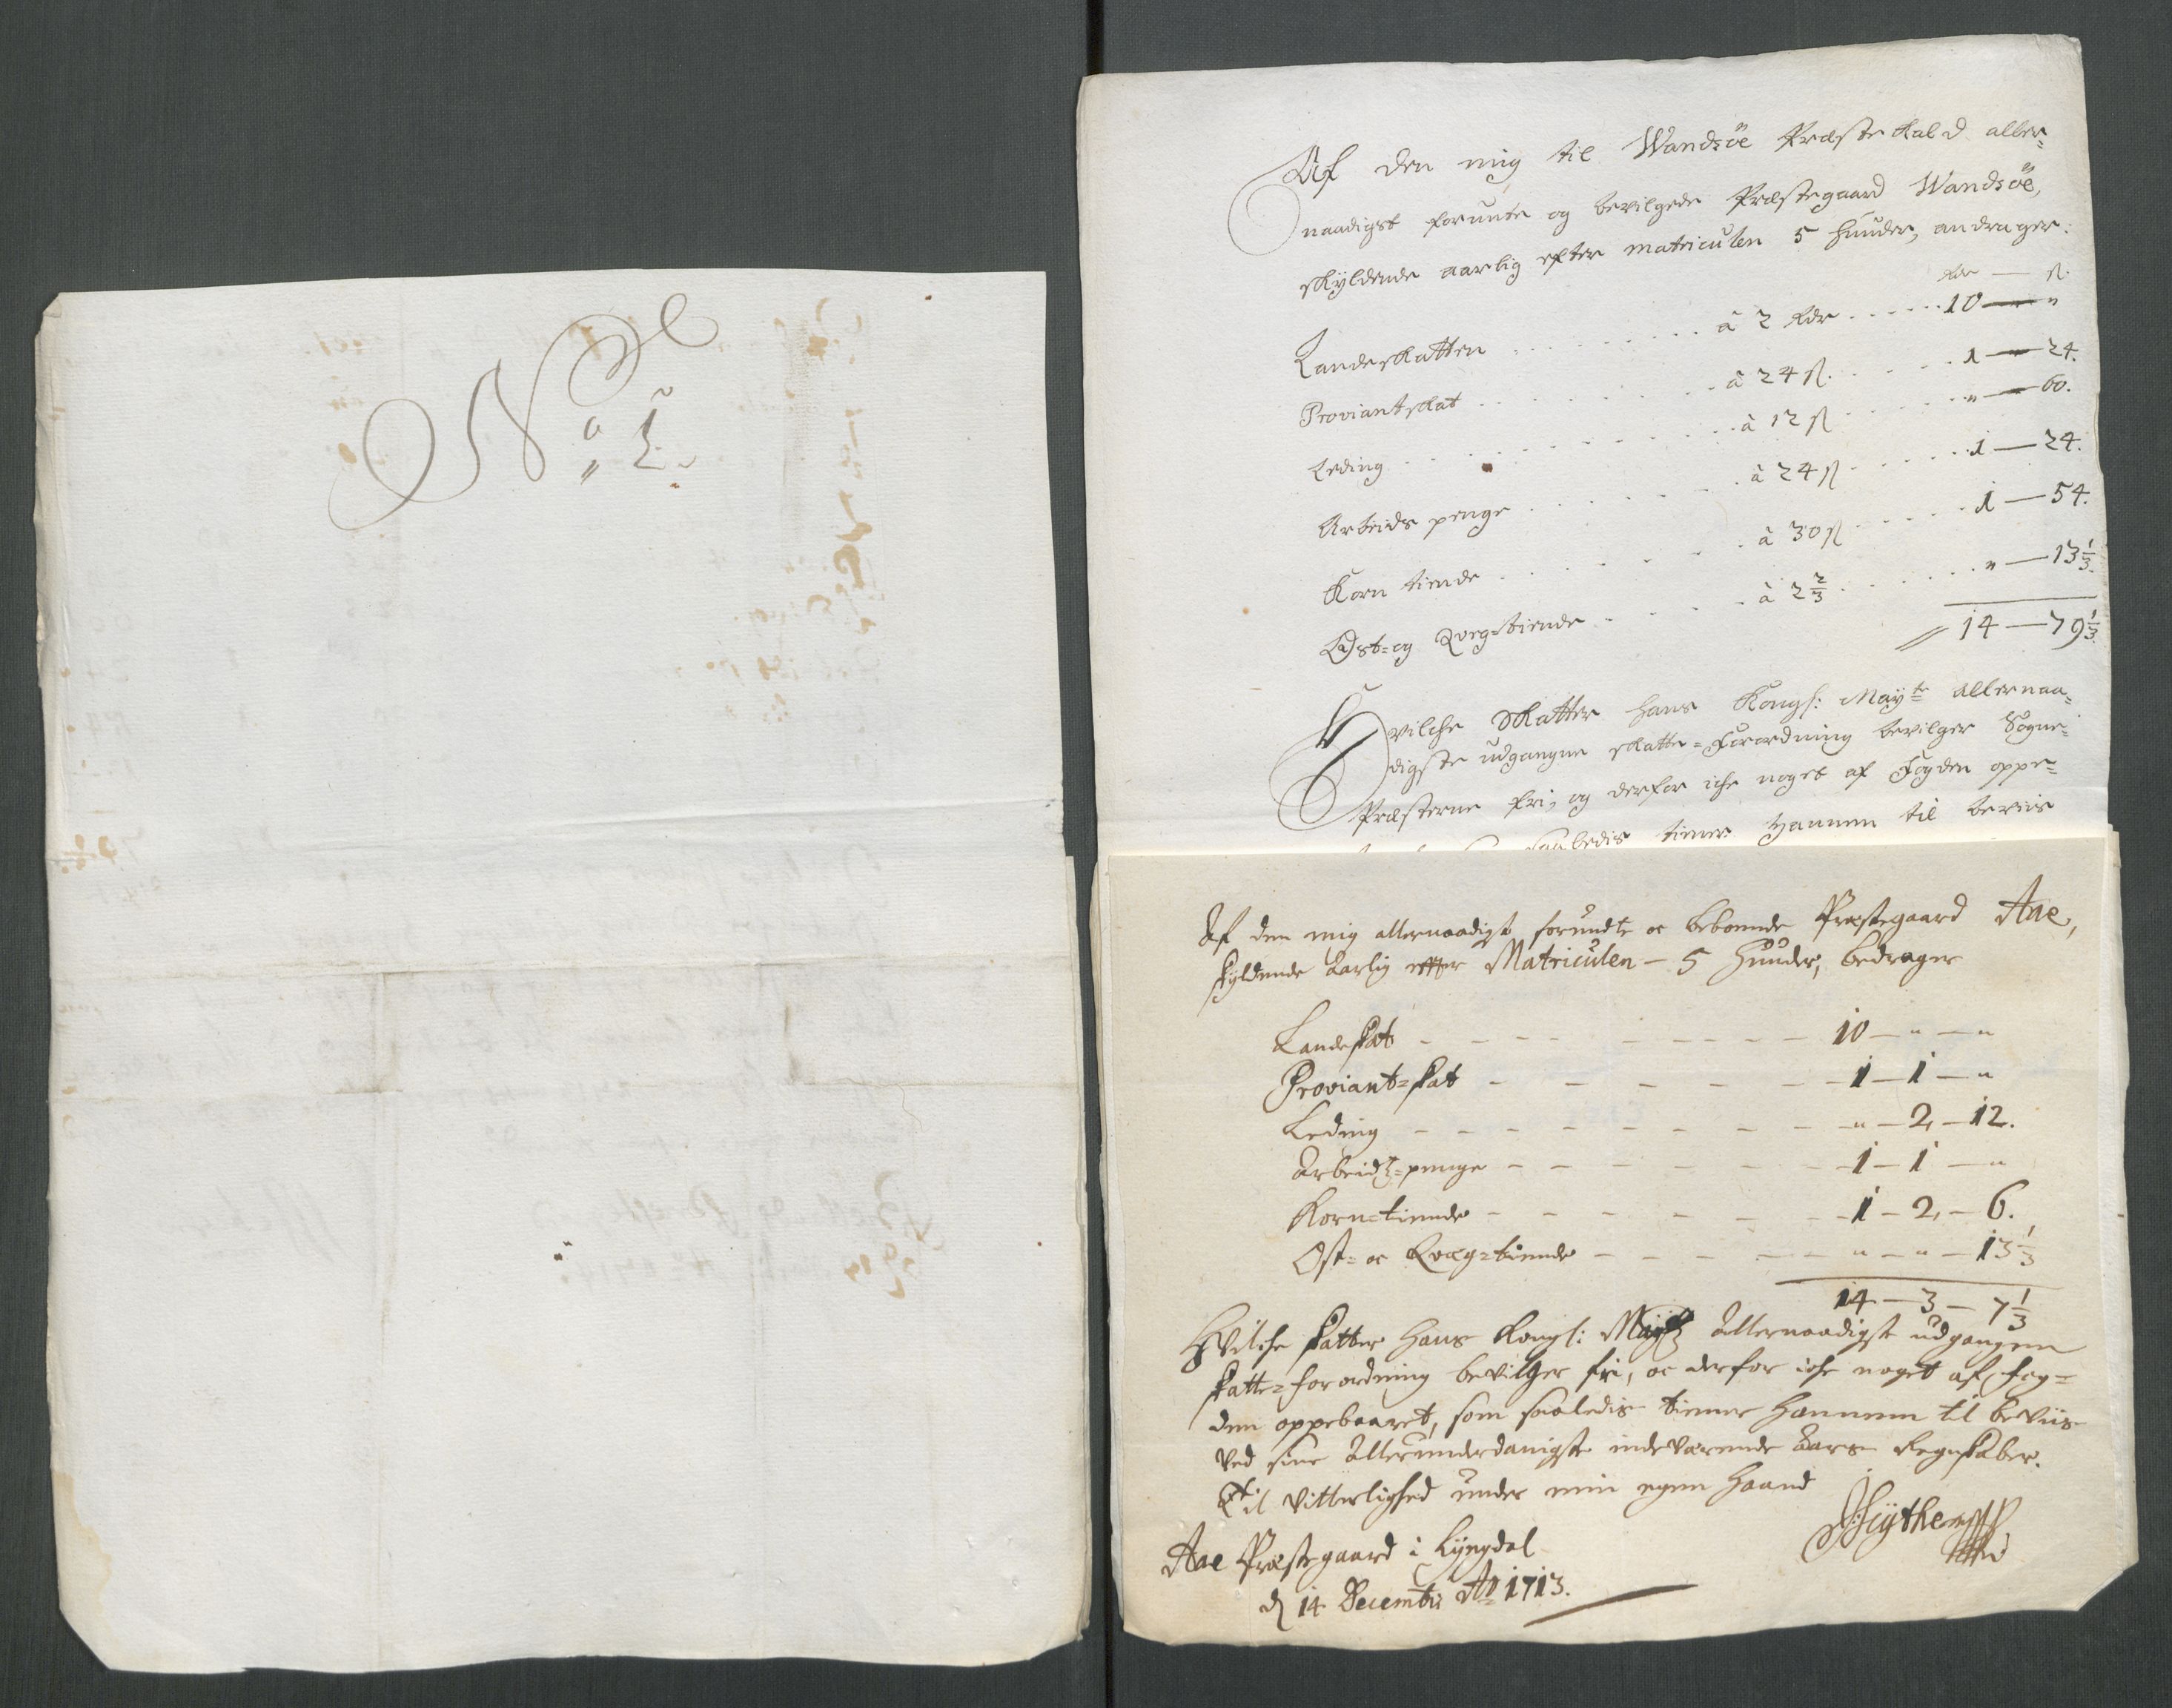 No 1.
Af den mig til Wandsöe Præste Kald aller=
naadigst forunte og bevilgede Præstegaard Wandsöe,
skyldende aarlig efter matriculen 5 huuder, andrager:
Rdr — ß.
Landskatten . . . . . . à 2 Rdr . . . . . 10 — "
Proviantskat . . . . . . à 24 ß. . . . . . 1 — 24.
Leding . . . . . . à 12 ß . . . . . " — 60.
Arbeids penge . . . . . . à 24 ß . . . . . 1 — 24.
Korn tiende . . . . . . à 30 ß . . . . . 1 — 54.
Ost= og Qveg=tiende . . . . . à 2 2/3 . . . . . " — 13 1/3.
14 — 79 1/3.
Hvilche Skatter hans Kongl: Mayts allernaa=
digste udgangne skatte=Forordning bevilger Sogne=
Præsterne fri, og derfor iche noget af Fogden oppe=
saaledis tiener hannem til beviis
Af den mig allernaadigst forundte oc beboende Præstegaard Aae,
skyldende Aarlig effter Matriculen – 5 Huuder, bedrager
Landskat - - - - - 10 — " — "
Proviant=skat - - - - - 1 — 1 — "
Leding - - - - - " — 2 — 12.
Arbeidtz=penge - - - - - 1 — 1 — "
Korn=tiende - - - - - 1 — 2 — 6.
Ost= oc Qvæg=tiende - - - - - " — " — 13 1/3
14 — 3 — 7 1/3
Hvilche skatter Hans Kongl: Maytz Allernaadigste udgangen
skatte=forordning bevilger fri, oc derfor iche noget af Fog=
den oppebaaret, som saaledis tiener Hannem til beviis
ved sine Allerunderdanigste indeværende Aars Regnskaber.
Til vitterlighed under min egen Haand
Aae Præstegaard i Lyngdal
d 14 Decembr Ao 1713.